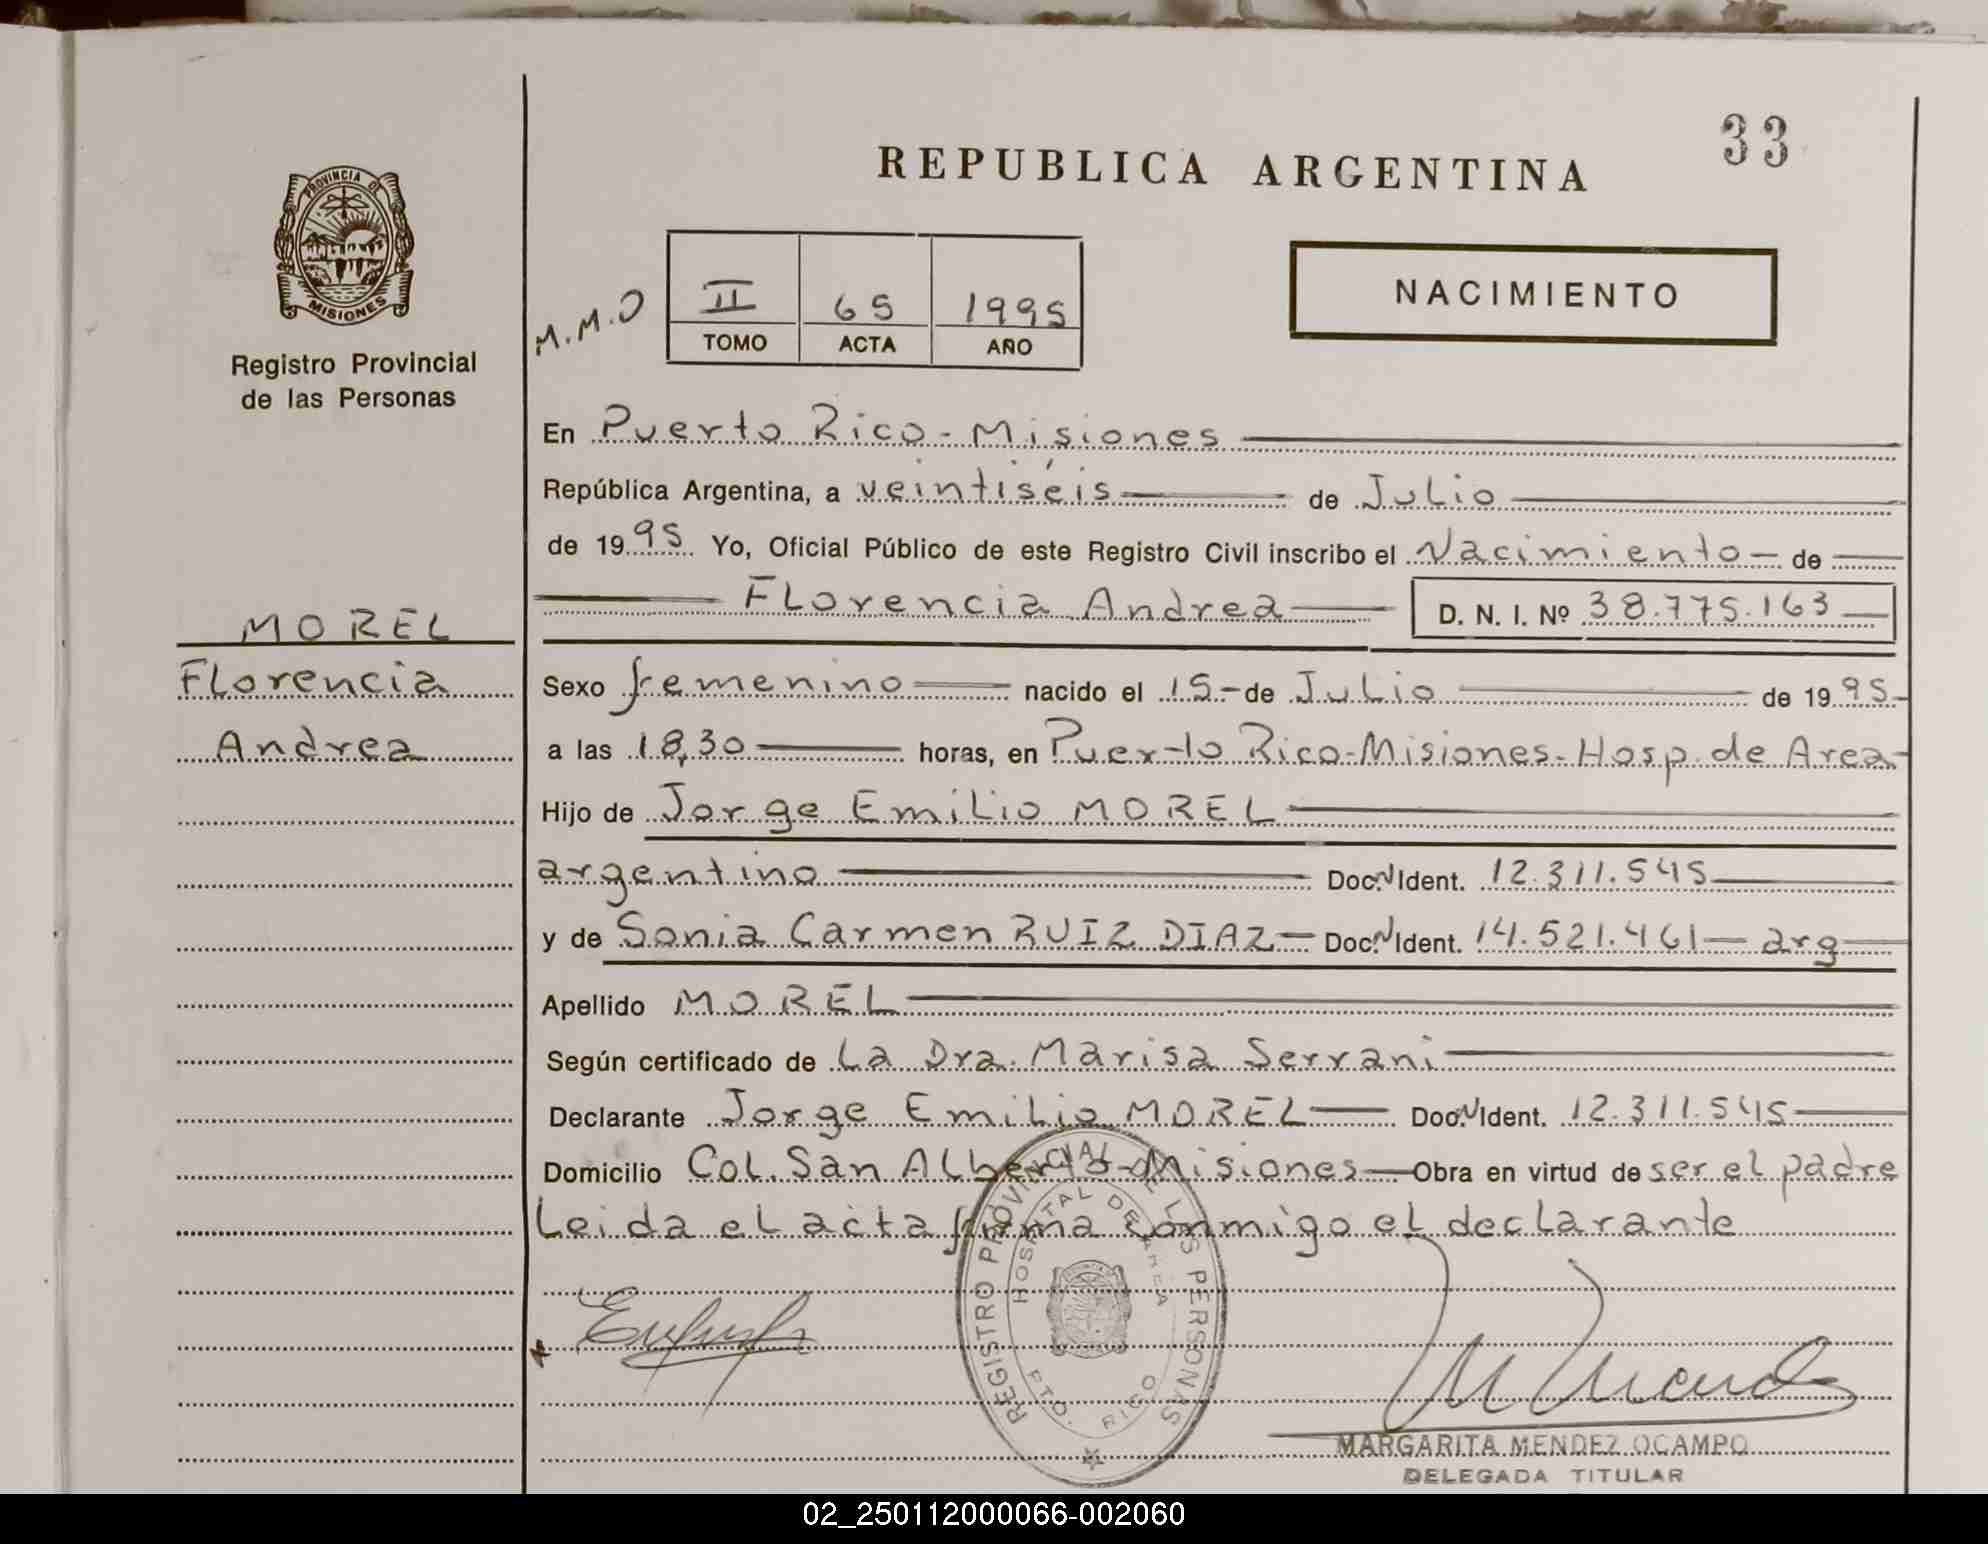 33
REPUBLICA ARGENTINA
PROVINCIA DE
MISIONES
Registro Provincial
de las Personas
M.M.O
II 65 1995
TOMO ACTA AÑO
NACIMIENTO
En Puerto Rico - Misiones
República Argentina, a veintiséis de Julio
de 1995 Yo, Oficial Público de este Registro Civil inscribo el Nacimiento de
Florencia Andrea D. N. I. Nº 38.775.163
MOREL
Florencia
Andrea
Sexo femenino nacido el 15 de Julio de 1995
a las 18,30 horas, en Puerto Rico-Misiones-Hosp. de Area
Hijo de Jorge Emilio MOREL
argentino Doc. N Ident. 12.311.545
y de Sonia Carmen RUIZ DIAZ Doc. N Ident. 14.521.461 arg
Apellido MOREL
Según certificado de La Dra. Marisa Serrani
Declarante Jorge Emilio MOREL Doc. N Ident. 12.311.545
Domicilio Col. San Alberto-Misiones Obra en virtud de ser el padre
Leida el acta firma conmigo el declarante
REGISTRO PROVINCIAL DE LAS PERSONAS
HOSPITAL DE AREA
PTO. RICO
MARGARITA MENDEZ OCAMPO
DELEGADA TITULAR
02_250112000066-002060